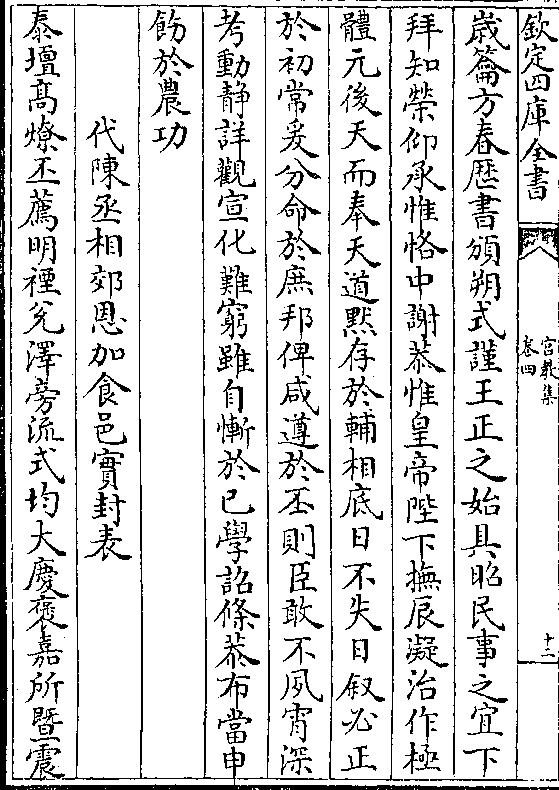 欽定四庫全書
宫教集
卷四
十二
歳籥方春歴書頒朔式謹王正之始具昭民事之宜下
拜知榮仰承惟恪中謝恭惟皇帝陛下撫辰凝治作極
體元後天而奉天道黙存於輔相底日不失日叙必正
於初常爰分命於庶邦俾咸遵於丕則臣敢不夙宵深
考動静詳觀宣化難窮雖自慚於已學詔條恭布當申
飭於農功
代陳丞相郊恩加食邑實封表
泰壇髙燎丕薦明禋兊澤旁流式均大慶褒嘉所暨震